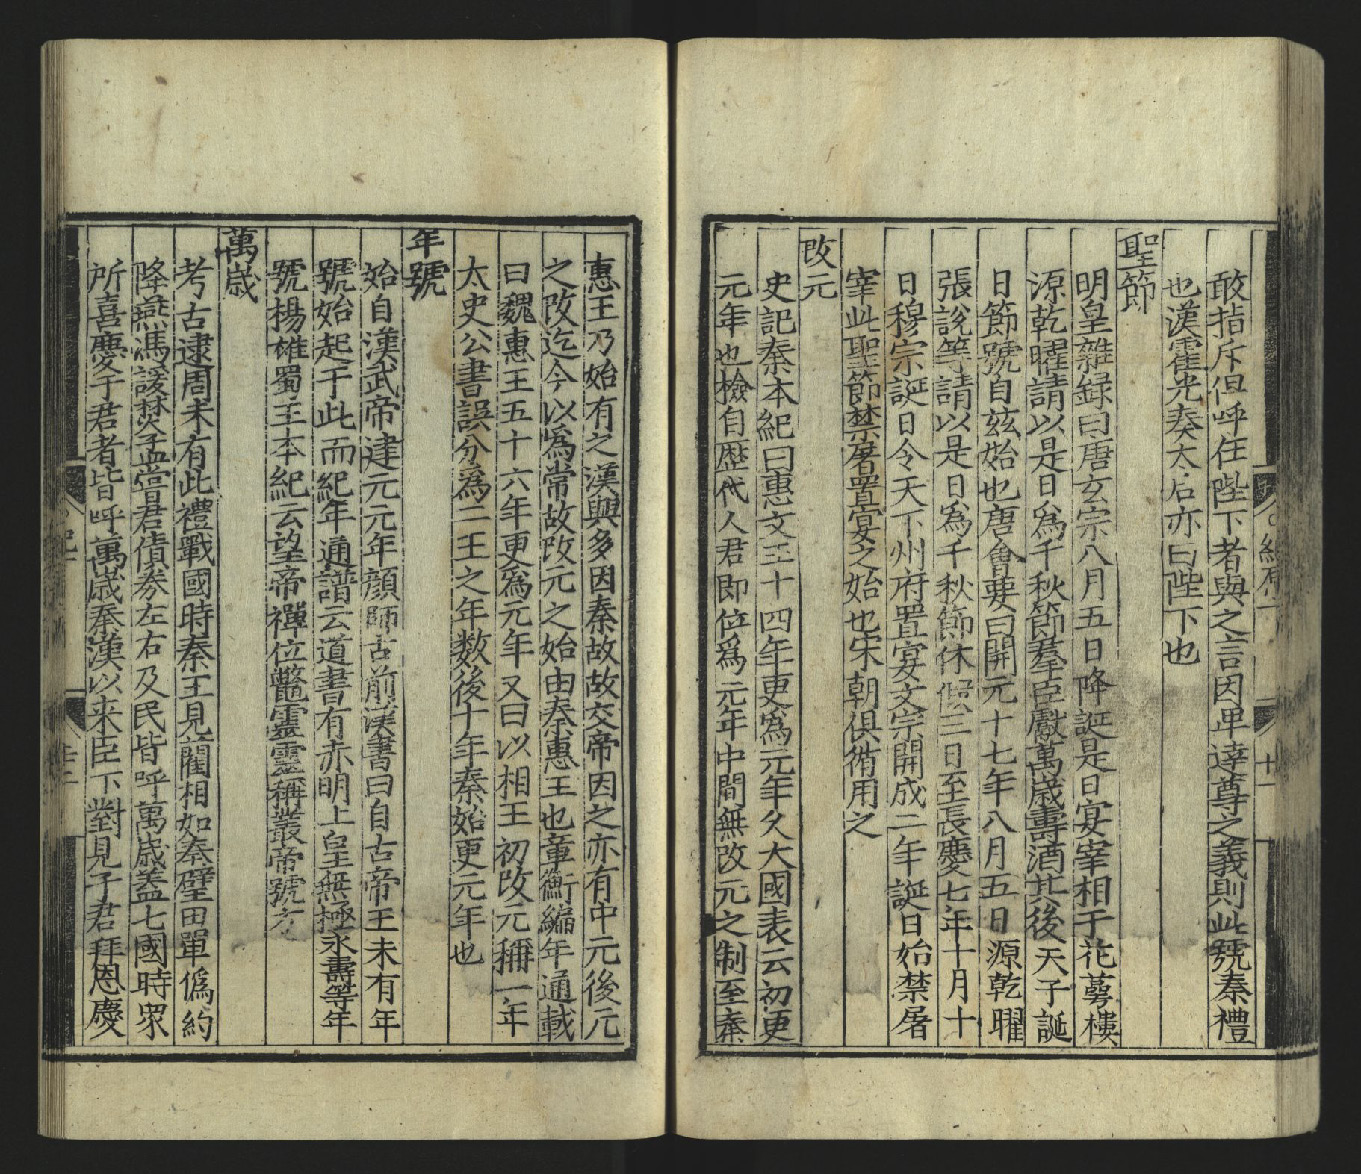 敢指斥但呼在陛下者與之言因卑達尊之義則此號秦禮
也漢霍光奏太后亦曰陛下也
聖節
明皇雜録曰唐玄宗八月五日降誕是日宴宰相于花萼樓
源乾曜請以是日為千秋節羣臣獻萬歲壽酒其後天子誕
日節號自兹始也唐會要曰開元十七年八月五日源乾曜
張說等請以是日為千秋節休假三日至長慶七年十月十
日穆宗誕日令天下州府置宴文宗開成二年誕日始禁屠
宰此聖節禁屠置宴之始也宋朝俱循用之
改元
史記秦本紀曰惠文王十四年更為元年久大國表云初更
元年也檢自歷代人君即位為元年中間無改元之制至秦
惠王乃始有之漢興多因秦故故文帝因之亦有中元後元
之改迄今以為常故改元之始由秦惠王也章衡編年通載
曰魏惠王五十六年更為元年又曰以相王初改元稱一年
太史公書誤分為二王之年数後十年秦始更元年也
年號
始自漢武帝建元元年顔師古前漢書曰自古帝王未有年
號始起于此而紀年通譜云道書有赤明上皇無極永壽等年
號楊雄蜀王本紀云望帝禪位鼈靈靈稱叢帝號万
萬歲
考古逮周未有此禮戰國時秦王見藺相如奉璧田單僞約
降燕馮諼焚孟嘗君債券左右及民皆呼萬歲蓋七國時衆
所喜慶于君者皆呼萬歲秦漢以来臣下對見于君拜恩慶